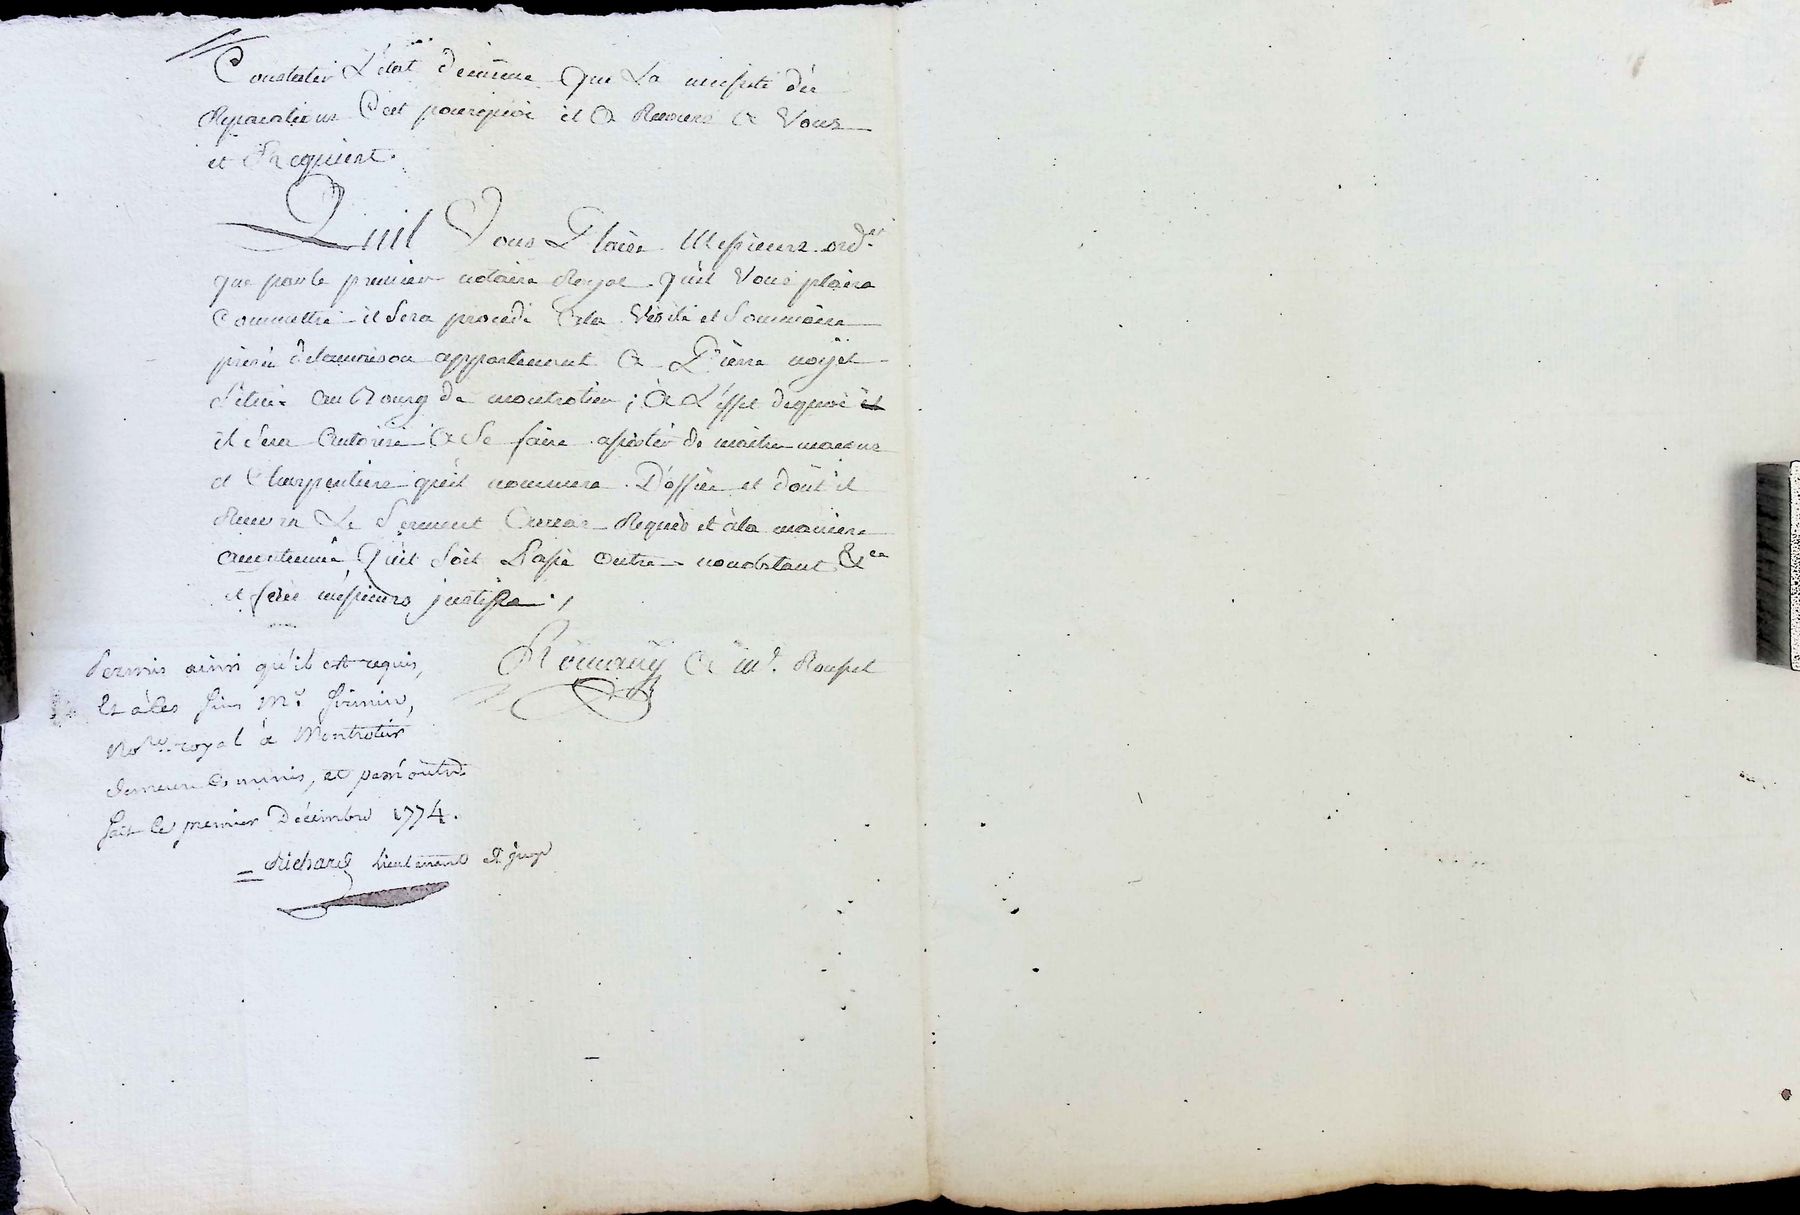 Constater L'état d'icelle que La necessité des
Reparations C'est pourquoi il a Recours a Vous
et Requiert.
Quil Vous Plaise Messieurs ord.er
que par le premier notaire Royal quil Vous plaira
Commettre il Sera procedé a la Visite et Sommaire
prisée de la maison appartenant a Pierre
Scituée au Bourg de montrotier; a L'effet de quoi
il Sera autorisé a Se faire assister de maitre macons
et Charpentiers quil nommera D'office et dont il
Recevra Le Serment au cas Requis et a la maniere
accoutumée, quil Soit Passé outre nonobstant &ca
et ferez messieurs justisse.
Romany a Mr. Roussel
Permis ainsi qu'il est requis,
Et à ces fins Mr. firmin,
No.re royal à Montrotier
demeure Commis, et passé outre
fait ce premier Décembre 1774.
Richard lieutenant et juge